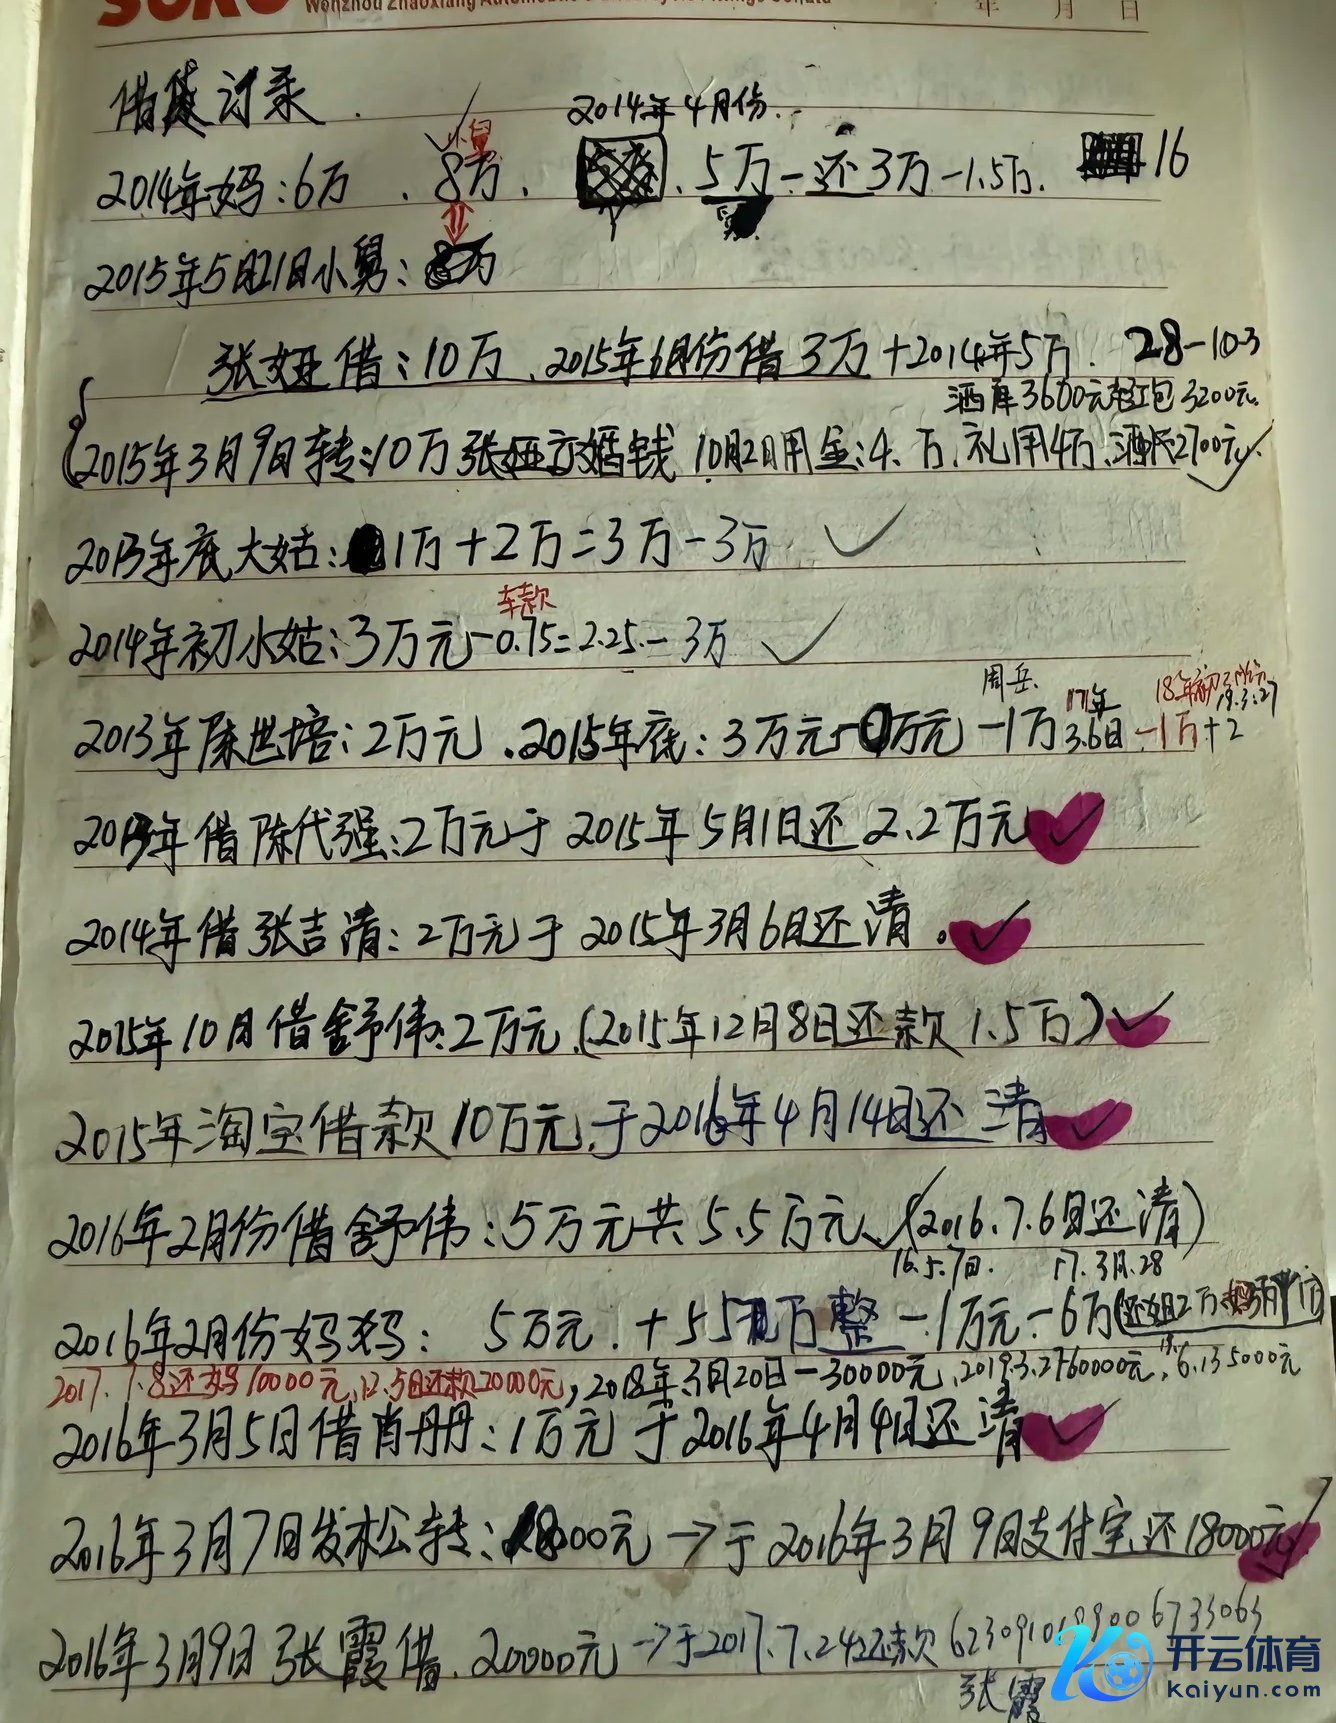 年 月 日
借贷记录.
2014年4月份.
小舅
2014年妈:6万 . 8万. .5万-还3万-1.5万. 16
2015年5月21日小舅:
张娅借:10万.2015年6月份借3万+2014年5万. 28-10-3
酒席3600元红包3200元.
2015年3月9日转:10万张娅交婚钱 10月2日用金:4.万.礼用4万.酒2700元.
2013年底大姑: 1万+2万=3万-3万
车款
2014年初小姑:3万元-0.75=2.25.-3万
周岳. 17年 18年初 19.3.27
2013年陈世培:2万元.2015年底:3万元 万元-1万 3.6日 -1万+2
2013年借陈代强:2万元于2015年5月1日还2.2万元
2014年借张吉清:2万元于2015年3月6日还清.
2015年10月借舒伟:2万元.(2015年12月8日还款1.5万)
2015年淘宝借款10万元.于2016年4月14日还清
2016年2月份借舒伟:5万元共5.5万元(2016.7.6日还清)
16.5.7日. 17.3月.28
2016年2月份妈妈: 5万元.+5 万整-1万元-6万(还姐2万
2017.7.8还妈10000元.12.5日还款20000元,2018年3月20日-30000元.2019.3.27 60000元, 6.13 5000元
2016年3月5日借肖丹丹:1万元于2016年4月4日还清
2016年3月7日发松转:18000元→于2016年3月9日支付宝还18000元
2016年3月9日张霞借.20000元→于2017.7.24还款
张霞
开云体育
kaiyun.com